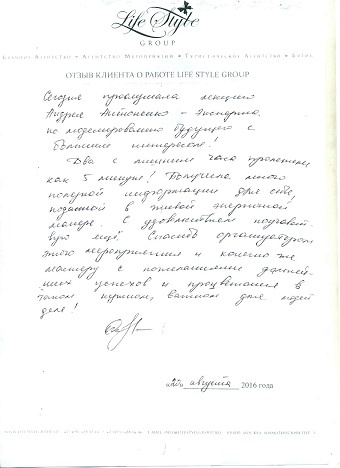 Life Style
GROUP
ОТЗЫВ КЛИЕНТА О РАБОТЕ LIFE STYLE GROUP
Сегодня прослушала лекцию
Андрея Антоненко – Эксперта
по моделированию будущего с
большим интересом.
Два с лишним часа пролетели
как 5 минут! Получила много
полезной информации для себя,
поданной в живой энергичной
манере. С удовольствием
ещё Спасибо организаторам
этого мероприятия и конечно же
мастеру с пожеланиями дальней-
ших успехов и процветания в
таком нужном, важном для людей
деле!
августа 2016 года